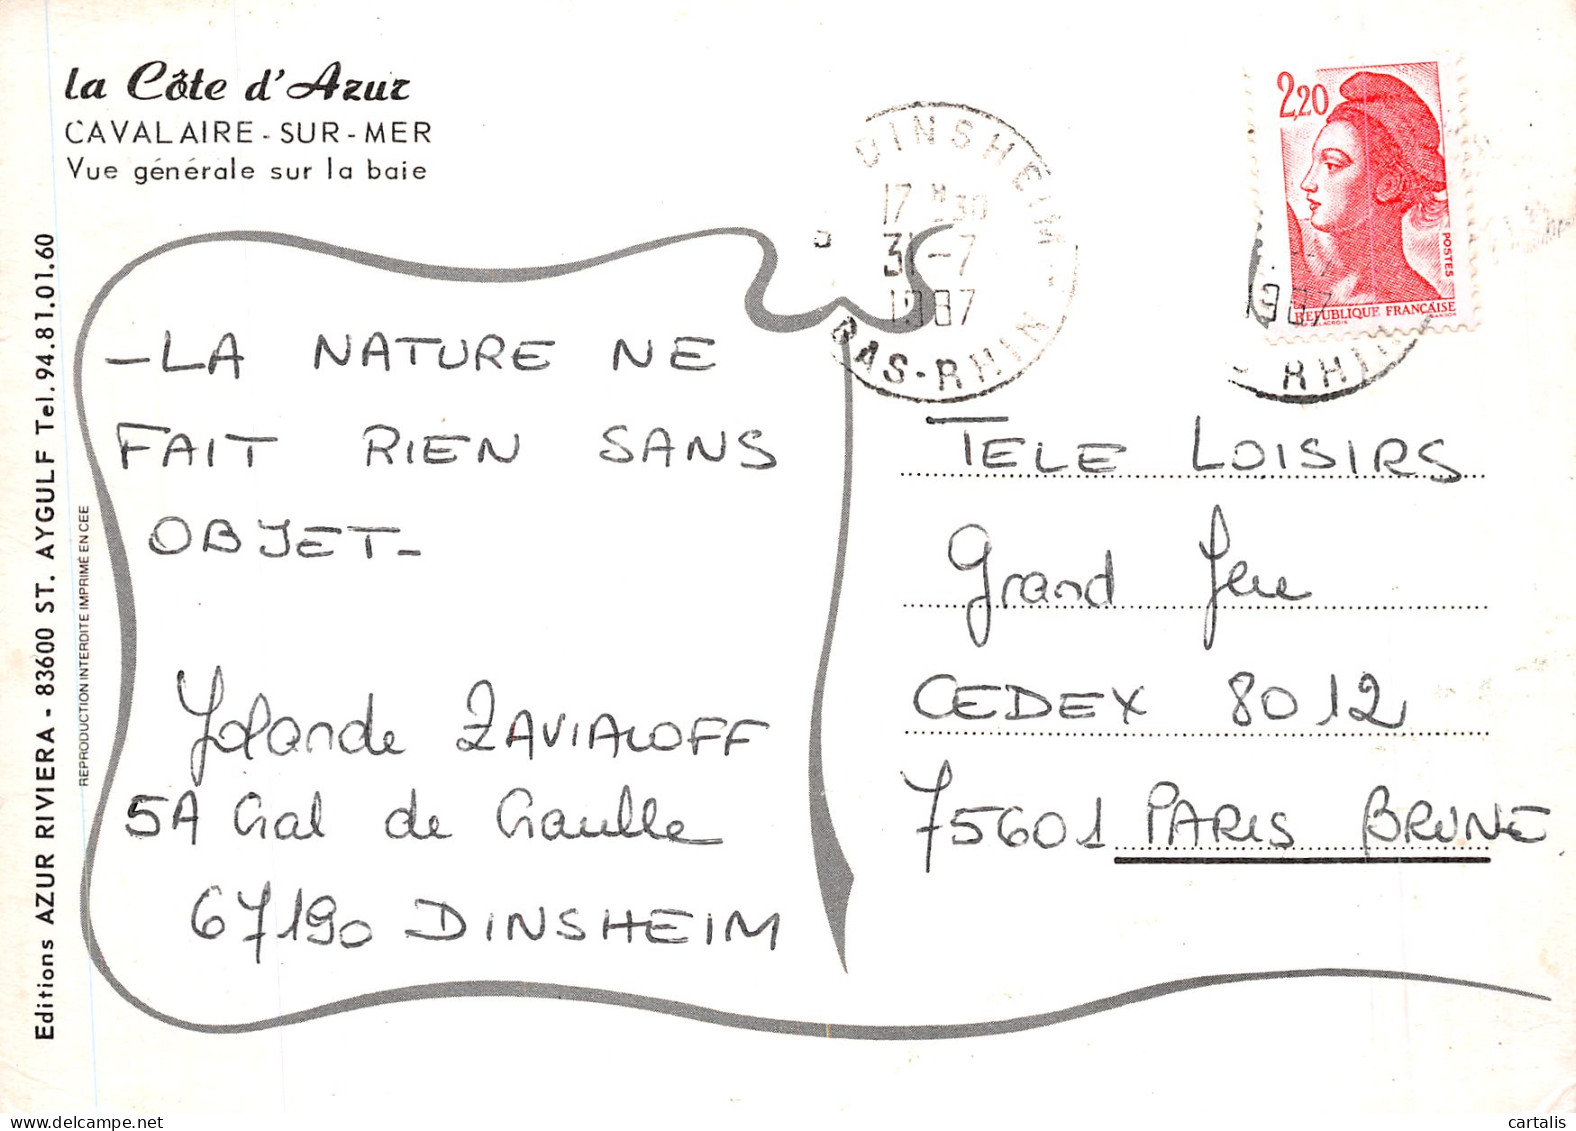 la Côte d'Azur
CAVALAIRE - SUR - MER
Vue générale sur la baie
Editions AZUR RIVIERA - 83600 ST. AYGULF Tel. 94.81.01.60
REPRODUCTION INTERDITE IMPRIMÉ EN CEE
- LA NATURE NE
FAIT RIEN SANS
OBJET -
Yolande ZAVIALOFF
5A Gal de Gaulle
67190 DINSHEIM
DINSHEIM
17 H 30
31-7
1987
BAS-RHIN
2,20
POSTES
REPUBLIQUE FRANÇAISE
1987
RHIN
TELE LOISIRS
Grand Jeu
CEDEX 8012
75601 PARIS BRUNE
delcampe.net
cartalis